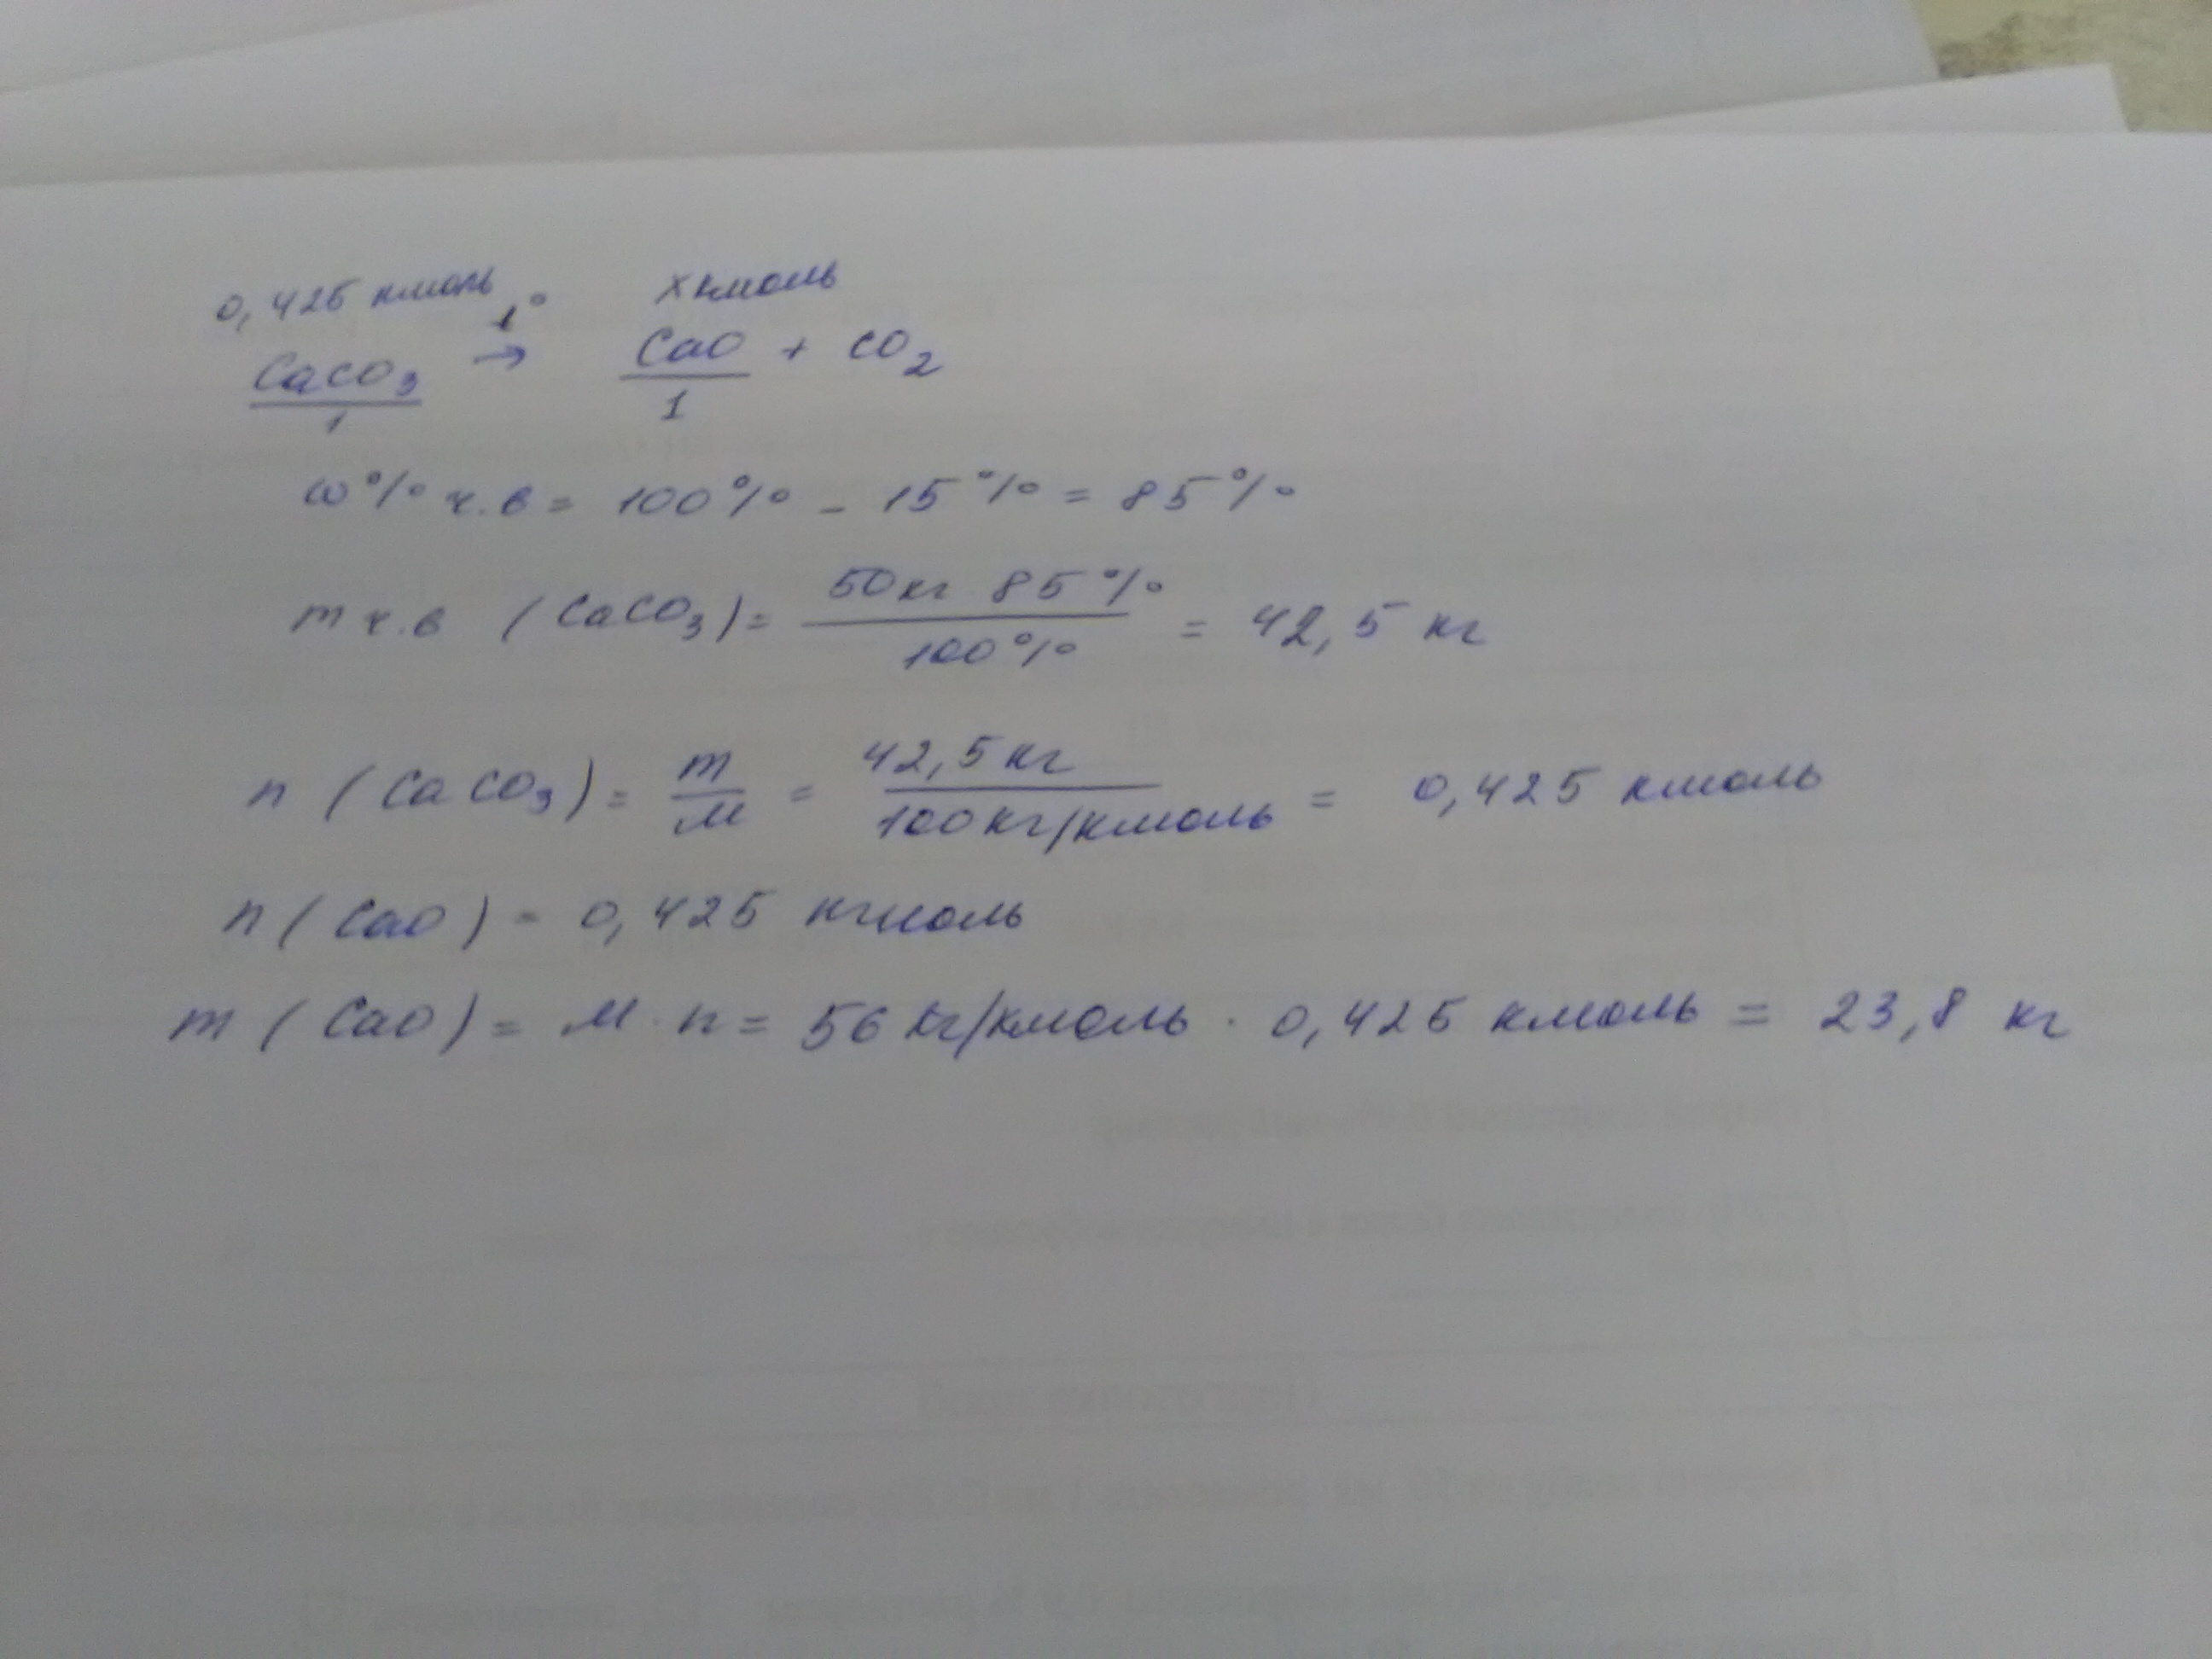 0,425 кмоль x кмоль
CaCO₃ t°→ CaO + CO₂
1 1
ω% ч.в = 100% - 15% = 85%
m ч.в (CaCO₃) = 50кг 85% / 100% = 42,5 кг
n (CaCO₃) = m / M = 42,5 кг / 100 кг/кмоль = 0,425 кмоль
n (CaO) = 0,425 кгмоль
m (CaO) = M · n = 56 кг/кмоль · 0,425 кмоль = 23,8 кг